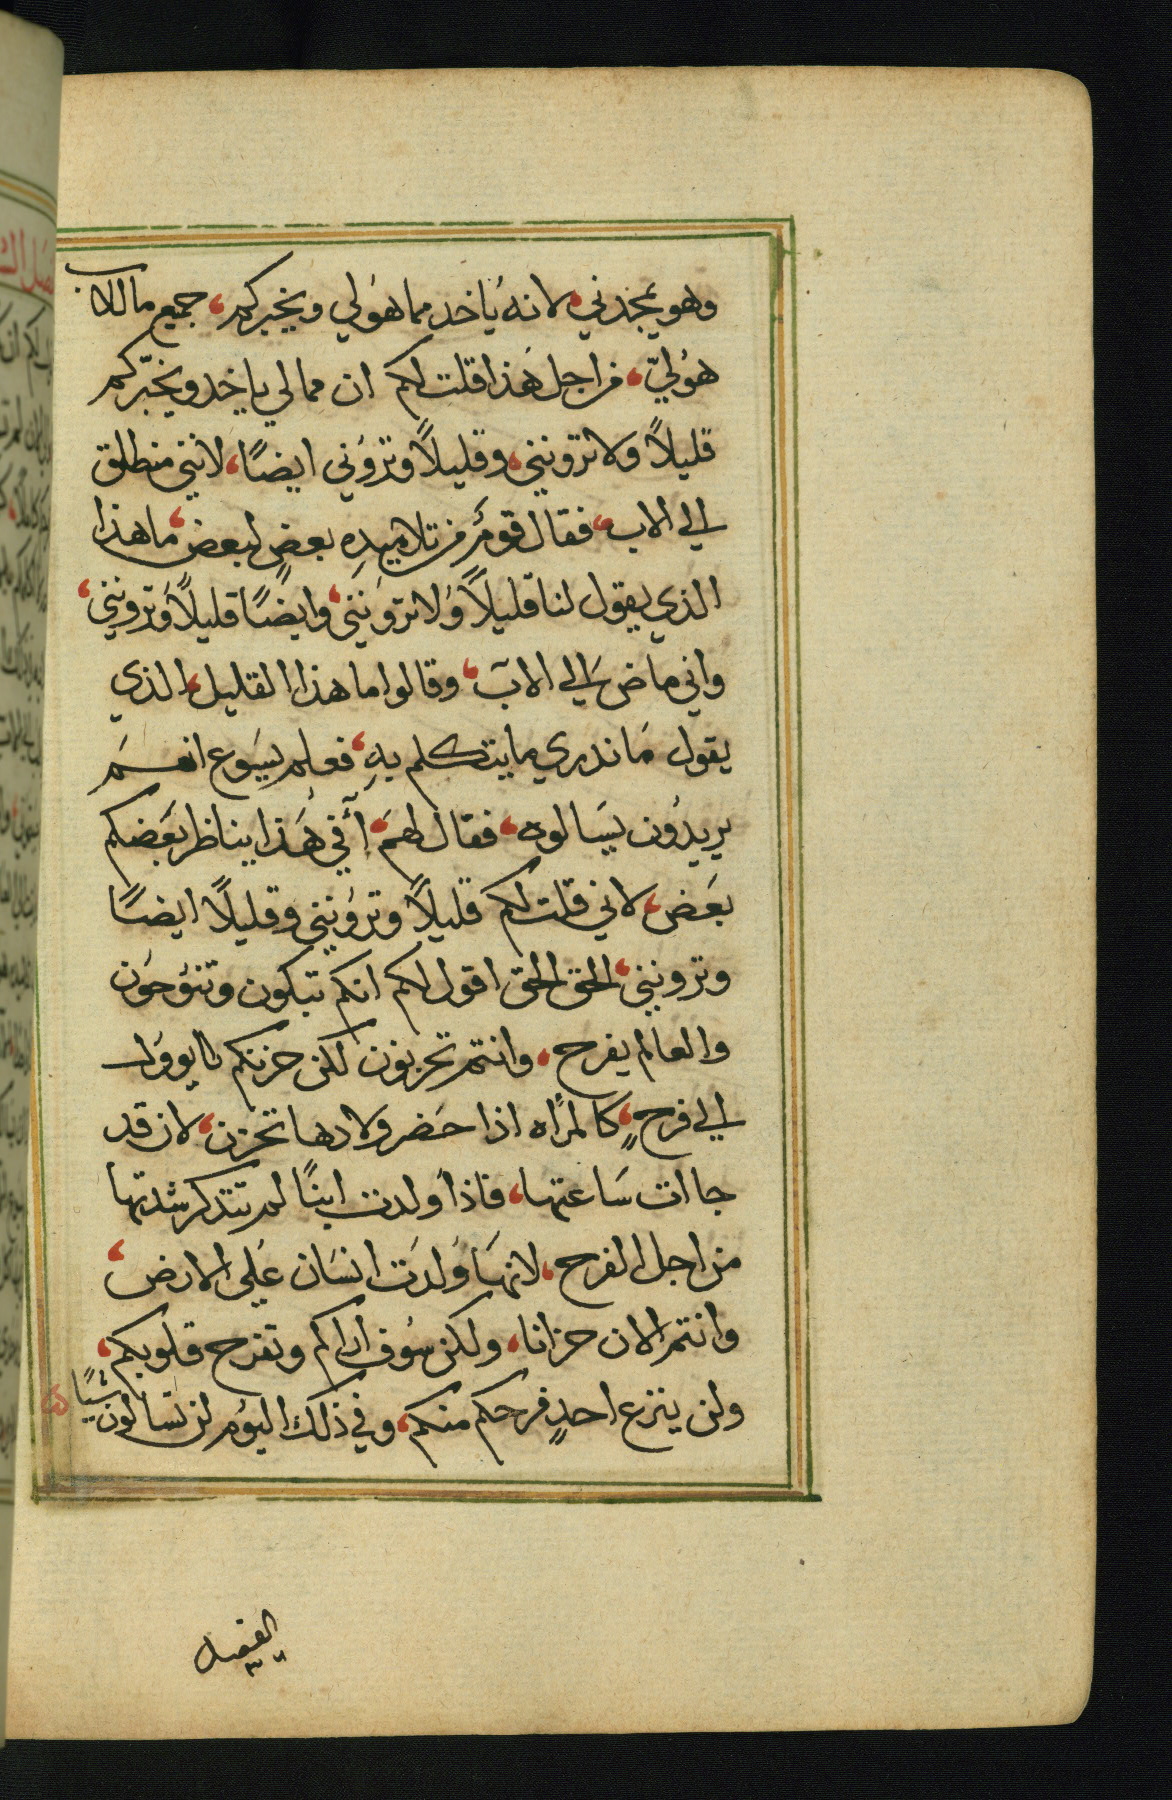 وهو يمجدني، لانه ياخد مما هو لي ويخبركم، جميع ما للاب
هو لي، من اجل هذا قلت لكم ان مما لي ياخد ويخبّركم
قليلاً ولا ترونني، وقليلاً وتروني ايضًا، لانني منطلق
الي الاب، فقال قومٌ من تلاميده بعضٍ لبعض، ما هذا
الذي يقول لنا قليلاً ولا ترونني، وايضًا قليلاً وترونني،
واني ماض الي الاب، وقالوا ما هذا القليل، الذي
يقول ما ندري ما يتكلم به، فعلم يسوع انهم
يريدون يسالوه، فقال لهم، أفي هذا يناظر بعضكم
بعض، لاني قلت لكم قليلاً وترونني وقليلاً ايضًا
وترونني، الحق الحق اقول لكم انكم تبكون وتنوحون
والعالم يفرح، وانتم تحزنون لكن حزنكم يوول
الي فرحٍ، كالمراه اذا حضر ولادها تحزن، لان قد
جاات ساعتها، فاذا ولدت ابنًا لم تتدكر شدتها
من اجل الفرح، لانها ولدت انسان علي الارض،
وانتم الان حزانا، ولكن سوف اراكم وتفرح قلوبكم،
ولن ينزع احدٍ فرحكم منكم، وفي ذلك اليوم لن تسالون شيًا